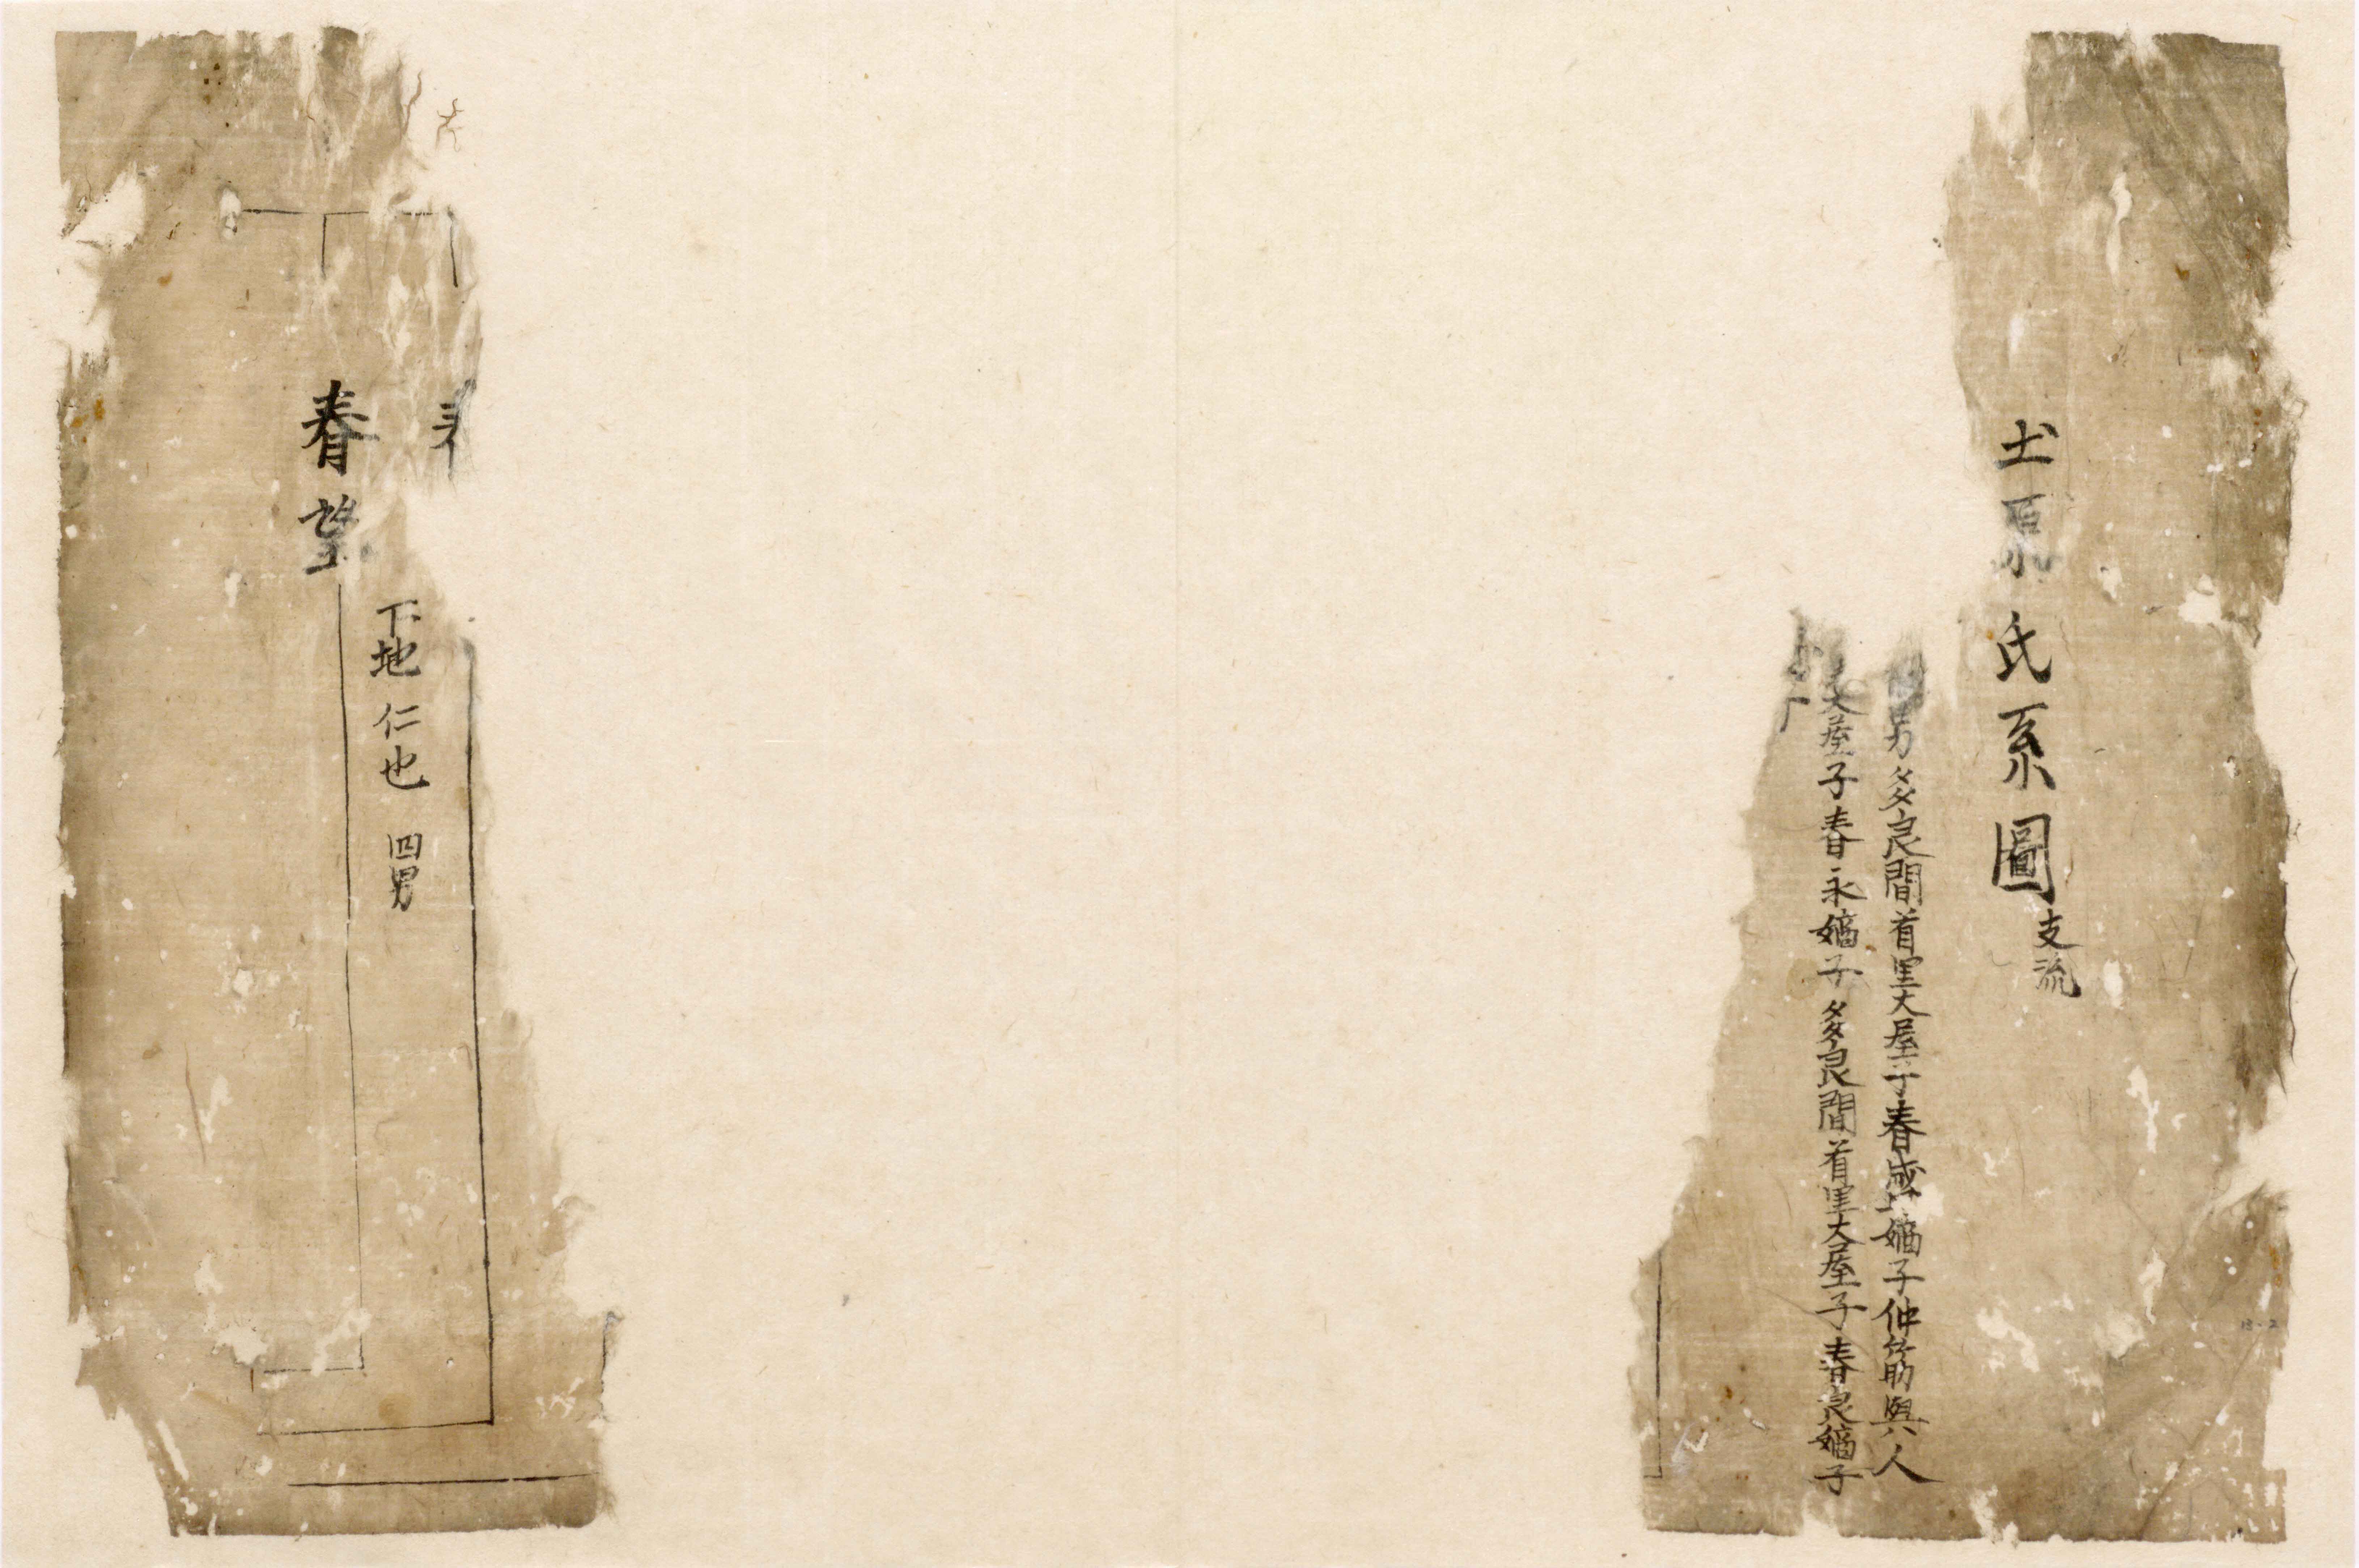 土原氏系圖支流
男多良間首里大屋子春盛嫡子仲筋與人
大屋子春永嫡子多良間首里大屋子春良嫡子
下地仁也 四男
春望